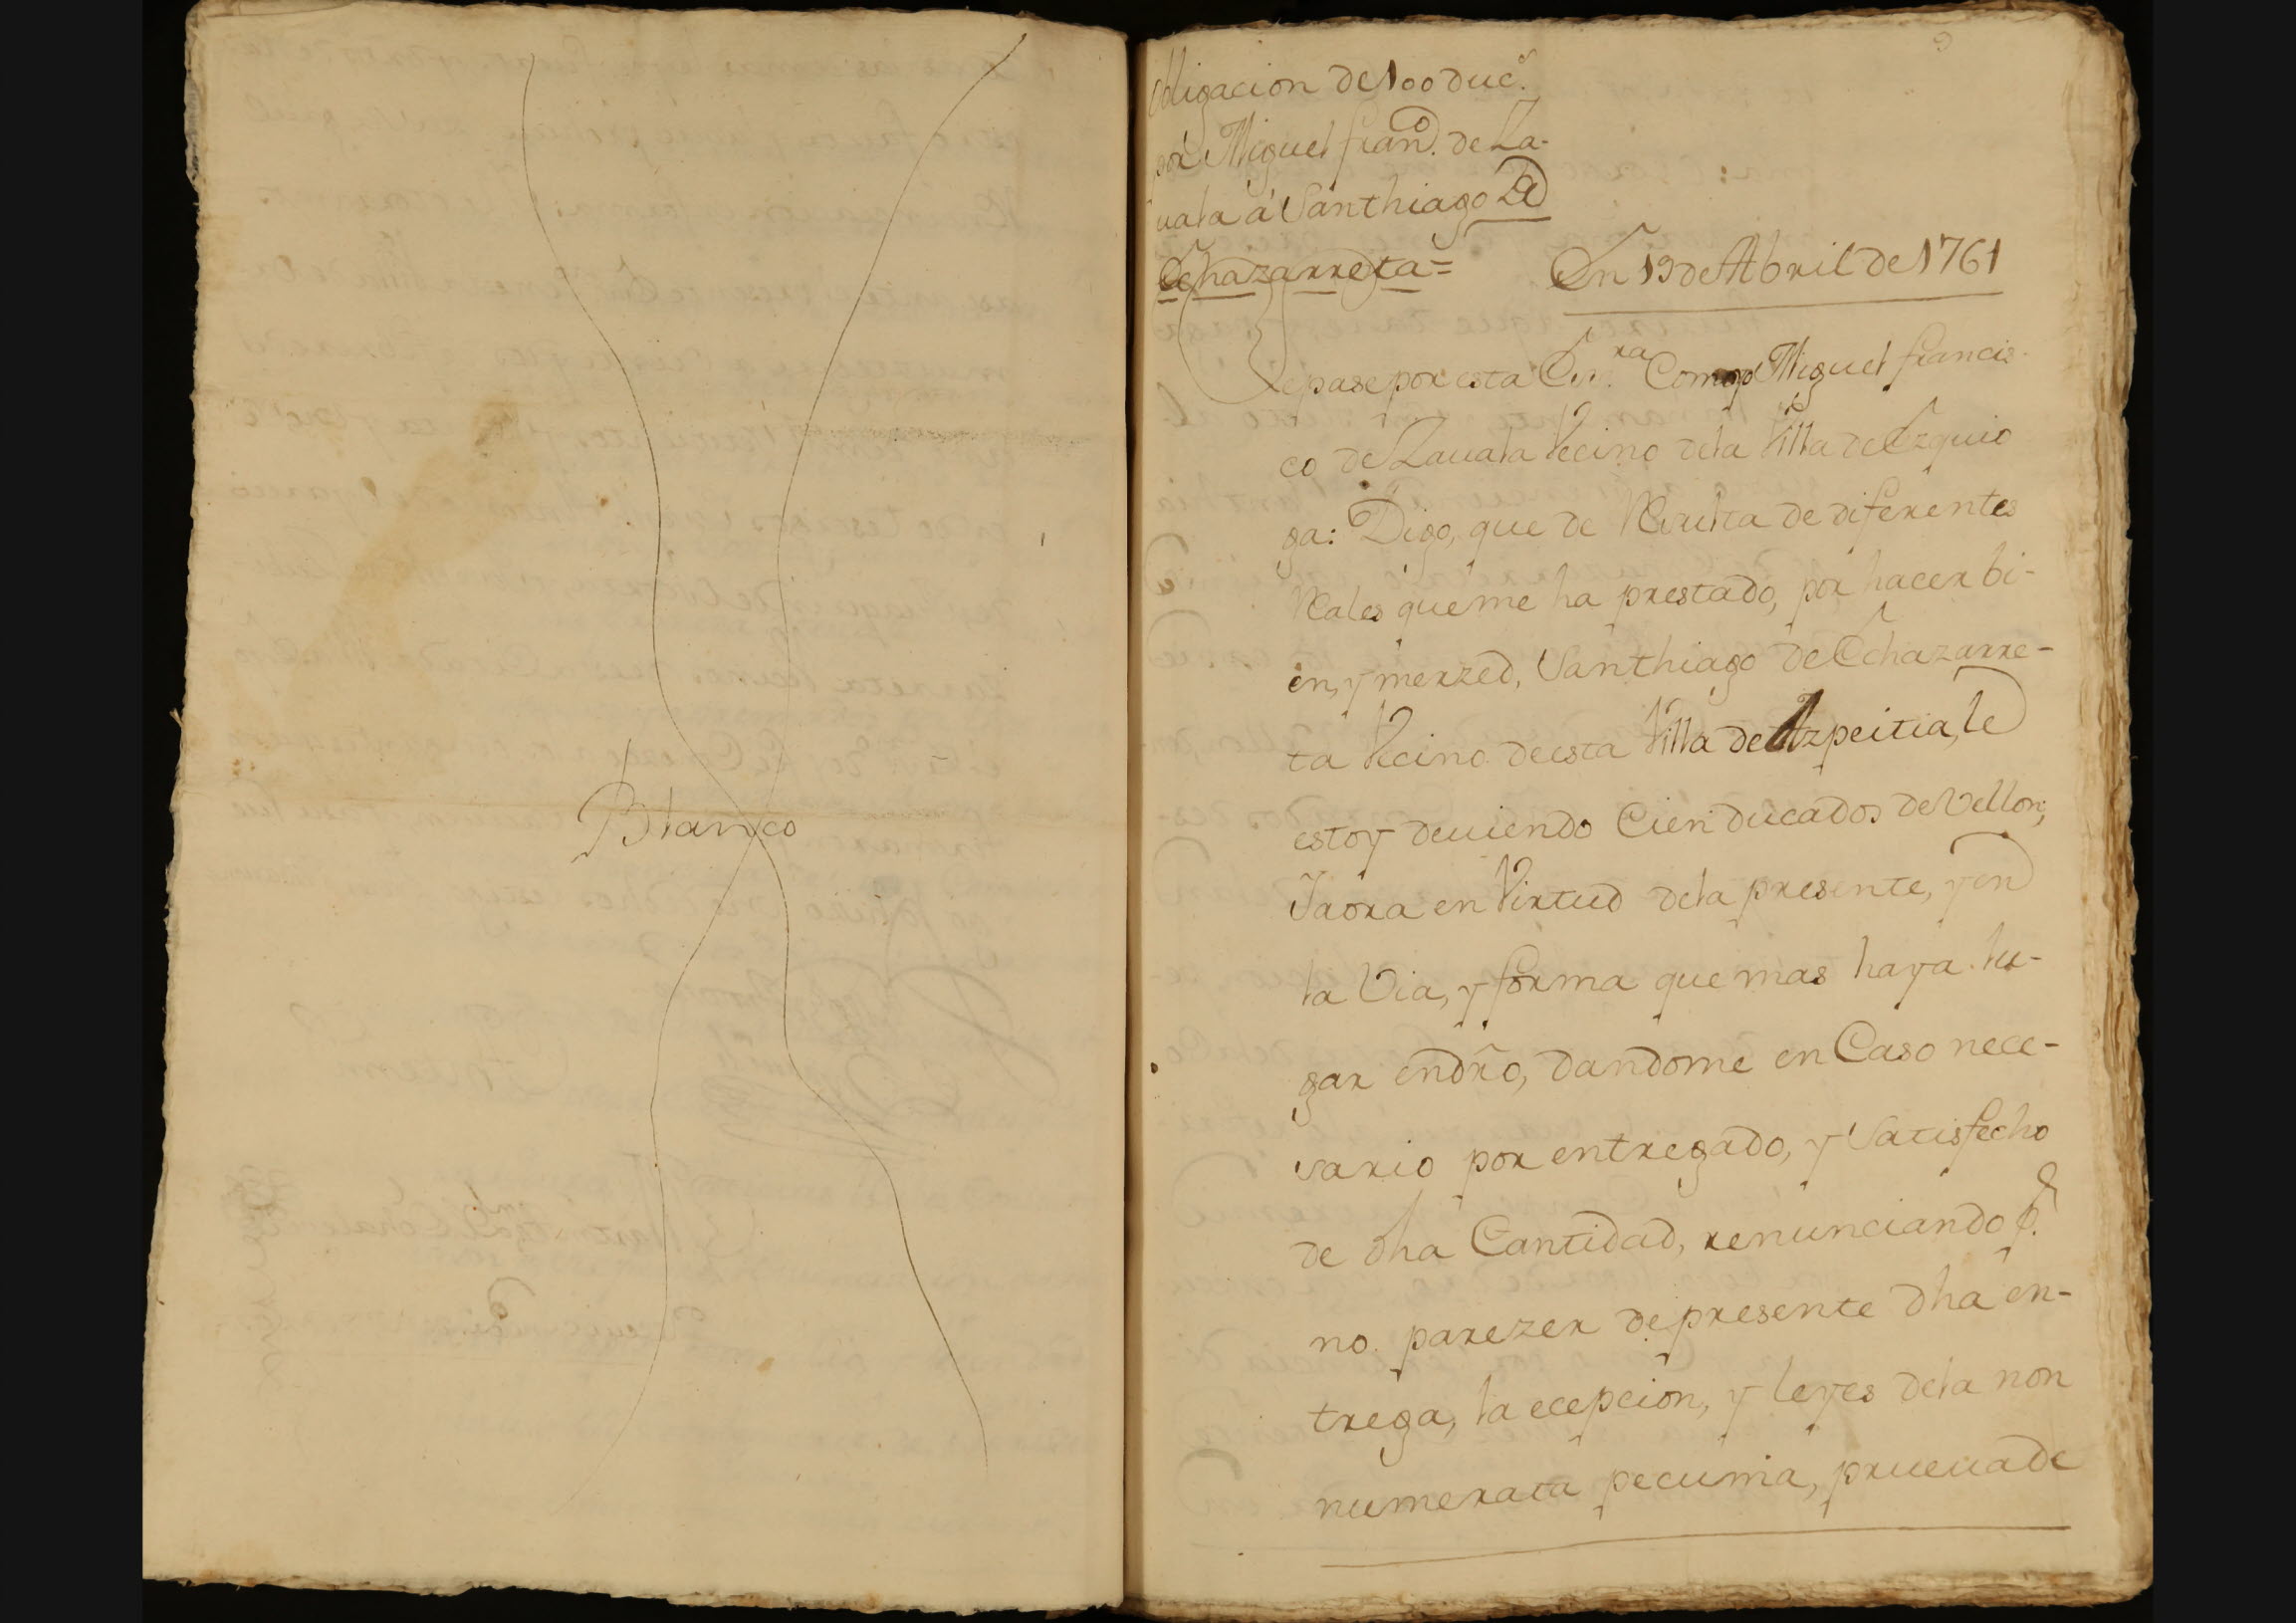 Blanco
Obligacion de 100 duc.^s
por Miguel fran.^co de Za-
uala a Santhiago de
Echazarreta=
En 19 de Abril de 1761
Sepase por esta Esc.^ra Como yo Miguel francis-
co de Zauala Vecino dela Villa de Ezquio
ga: Digo, que de Resulta de diferentes
Reales que me ha prestado, por hacer bi-
en, y merzed, Santhiago de Echazarre-
ta Vecino de esta Villa de Azpeitia, le
estoy deuiendo Cien ducados de Vellon;
Iaora en Virtud dela presente, y en
la Via, y forma que mas haya lu-
gar en dr̃o, dandome en Caso nece-
sario por entregado, y Satisfecho
de dha Cantidad, renunciando p.^r
no parezer de presente dha en-
trega, la ecepcion, y leyes dela non
numerata pecunia, prueua de